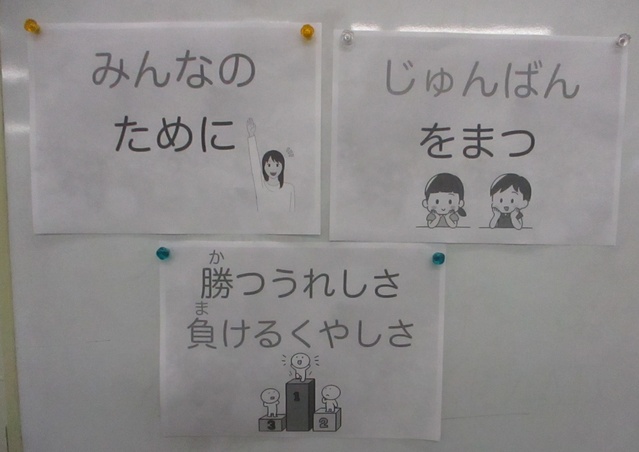 みんなの
ために
じゅんばん
をまつ
か
勝つうれしさ
ま
負けるくやしさ
1
3 2